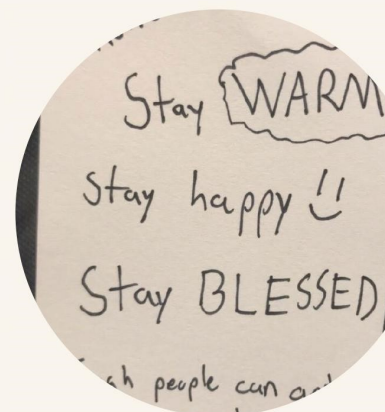 Stay WARM
Stay happy
Stay BLESSED
people can